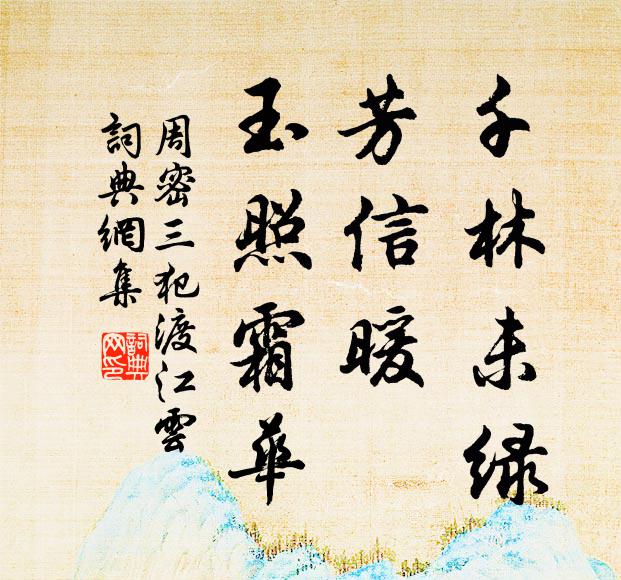 千林未緑
芳信暖
玉照霜華
周密三犯渡江雲
詞典網集
詞典
网印